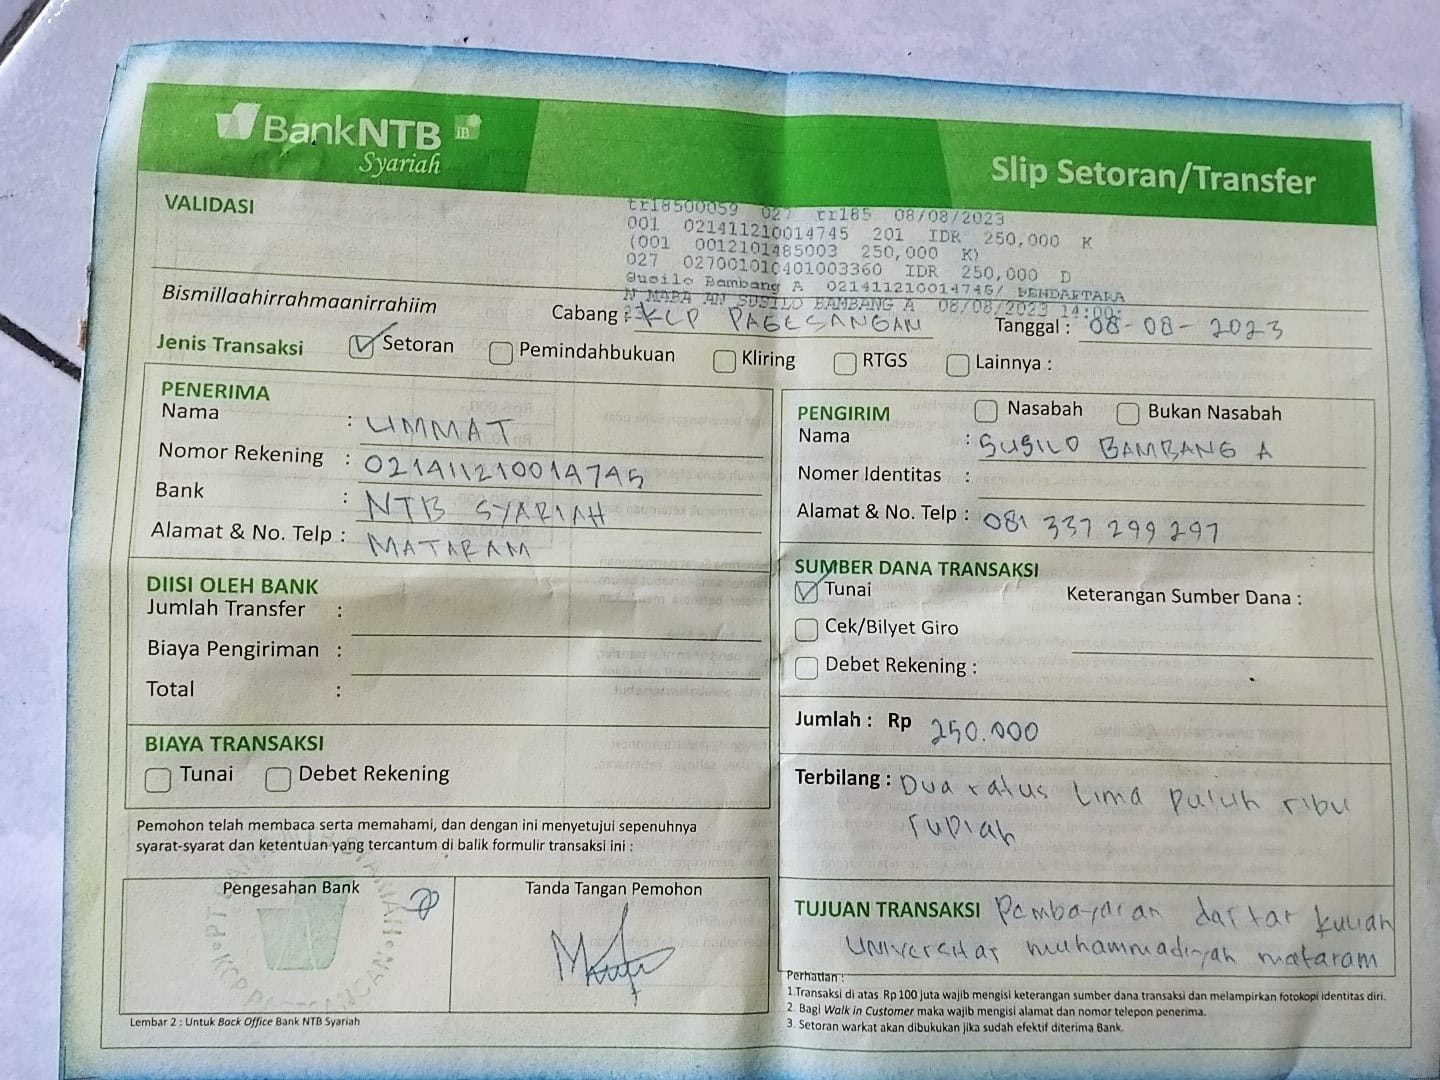 BankNTB
Syariah
Slip Setoran/Transfer
VALIDASI
tr18500059 027 tr185 08/08/2023
001 021411210014745 201 IDR 250,000 K
(001 0012101485003 250,000 K)
027 027001010401003360 IDR 250,000 D
Susilo Bambang A 021411210014745/ PENDAFTARA
N MABA AN SUSILO BAMBANG A 08/08/2023 14:00:
Bismillaahirrahmaanirrahiim
Cabang : KCP PAGESANGAN
Tanggal : 08-08-2023
Jenis Transaksi Setoran Pemindahbukuan Kliring RTGS Lainnya :
PENERIMA
Nama : UMMAT
Nomor Rekening : 021411210014745
Bank : NTB SYARIAH
Alamat & No. Telp : MATARAM
PENGIRIM Nasabah Bukan Nasabah
Nama : SUSILO BAMBANG A
Nomer Identitas :
Alamat & No. Telp : 081 337 299 297
DIISI OLEH BANK
Jumlah Transfer :
Biaya Pengiriman :
Total :
SUMBER DANA TRANSAKSI
Tunai Keterangan Sumber Dana :
Cek/Bilyet Giro
Debet Rekening :
BIAYA TRANSAKSI
Tunai Debet Rekening
Jumlah : Rp 250.000
Terbilang : Dua ratus Lima puluh ribu
rupiah
Pemohon telah membaca serta memahami, dan dengan ini menyetujui sepenuhnya
syarat-syarat dan ketentuan yang tercantum di balik formulir transaksi ini :
Pengesahan Bank
Tanda Tangan Pemohon
TUJUAN TRANSAKSI Pembayaran daftar kuliah
Universitas muhammadiyah mataram
Perhatian :
1.Transaksi di atas Rp 100 juta wajib mengisi keterangan sumber dana transaksi dan melampirkan fotokopi identitas diri.
2. Bagi Walk in Customer maka wajib mengisi alamat dan nomor telepon penerima.
3. Setoran warkat akan dibukukan jika sudah efektif diterima Bank.
Lembar 2 : Untuk Back Office Bank NTB Syariah